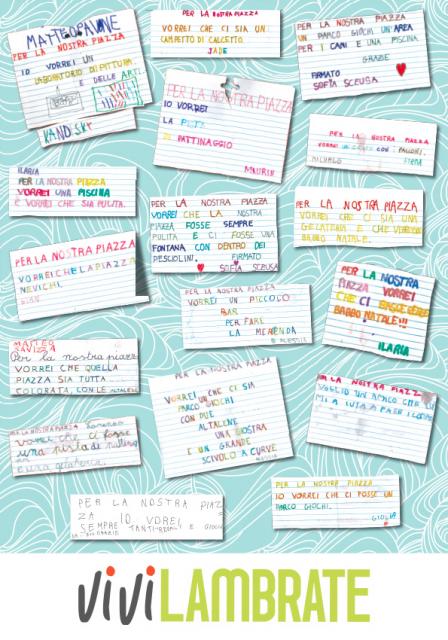 MATTEO PAVONE
PER LA NOSTRA PIAZZA
IO VORREI UN
LABORATORIO DI PITTURA
E DELLE ARTI
KANDSKY
PER LA NOSTRA PIAZZA
VORREI CHE CI SIA UN
CAMPETTO DI CALCETTO
JADE
PER LA NOSTRA PIAZZA
UN PARCO GIOCHI UN'AREA
PER I CANI E UNA PISCINA
GRAZIE
FIRMATO
SOFIA SCEUSA
PER LA NOSTRA PIAZZA
IO VORREI
LA PISTA
DI PATTINAGGIO
PER LA NOSTRA PIAZZA
VORREI UN CON PALLONI
ILARIA
PER LA NOSTRA PIAZZA
VORREI UNA PISCINA
E VORREI CHE SIA PULITA.
PER LA NOSTRA PIAZZA
VORREI CHE LA NOSTRA
PIAZZA FOSSE SEMPRE
PULITA E CI FOSSE UNA
FONTANA CON DENTRO DEI
PESCIOLINI. FIRMATO
SOFIA SCEUSA
PER LA NOSTRA PIAZZA
VORREI CHE CI SIA UNA
GELATERIA E CHE VENISSE
BABBO NATALE.
PER LA NOSTRA PIAZZA
VORREI CHE LA PIAZZA
NEVICHI.
PER LA NOSTRA PIAZZA
VORREI UN PICCOLO
BAR
PER FARE
LA MERENDA
ALESSIA
PER LA NOSTRA
PIAZZA VORREI
CHE CI FOSSE
BABBO NATALE!!!
ILARIA
MATTEO
Per la nostra piazza
VORREI CHE QUELLA
PIAZZA SIA TUTTA
COLORATA, CON LE ALTALENE
PER LA NOSTRA PIAZZA
VORREI CHE CI SIA
PARCO GIOCHI
CON DUE
ALTALENE
UNA GIOSTRA
E UN GRANDE
SCIVOLO A CURVE
PER LA NOSTRA PIAZZA
VOGLIO UN AMICO CHE
PER LA NOSTRA PIAZZA
vorrei che ci fosse
una pista di
e una gelateria.
PER LA NOSTRA PIAZ
ZA IO VORREI
SEMPRE TANTI E GIOCHI
PER LA NOSTRA PIAZZA
IO VORREI CHE CI FOSSE UN
PARCO GIOCHI.
GIULIA
viviLAMBRATE